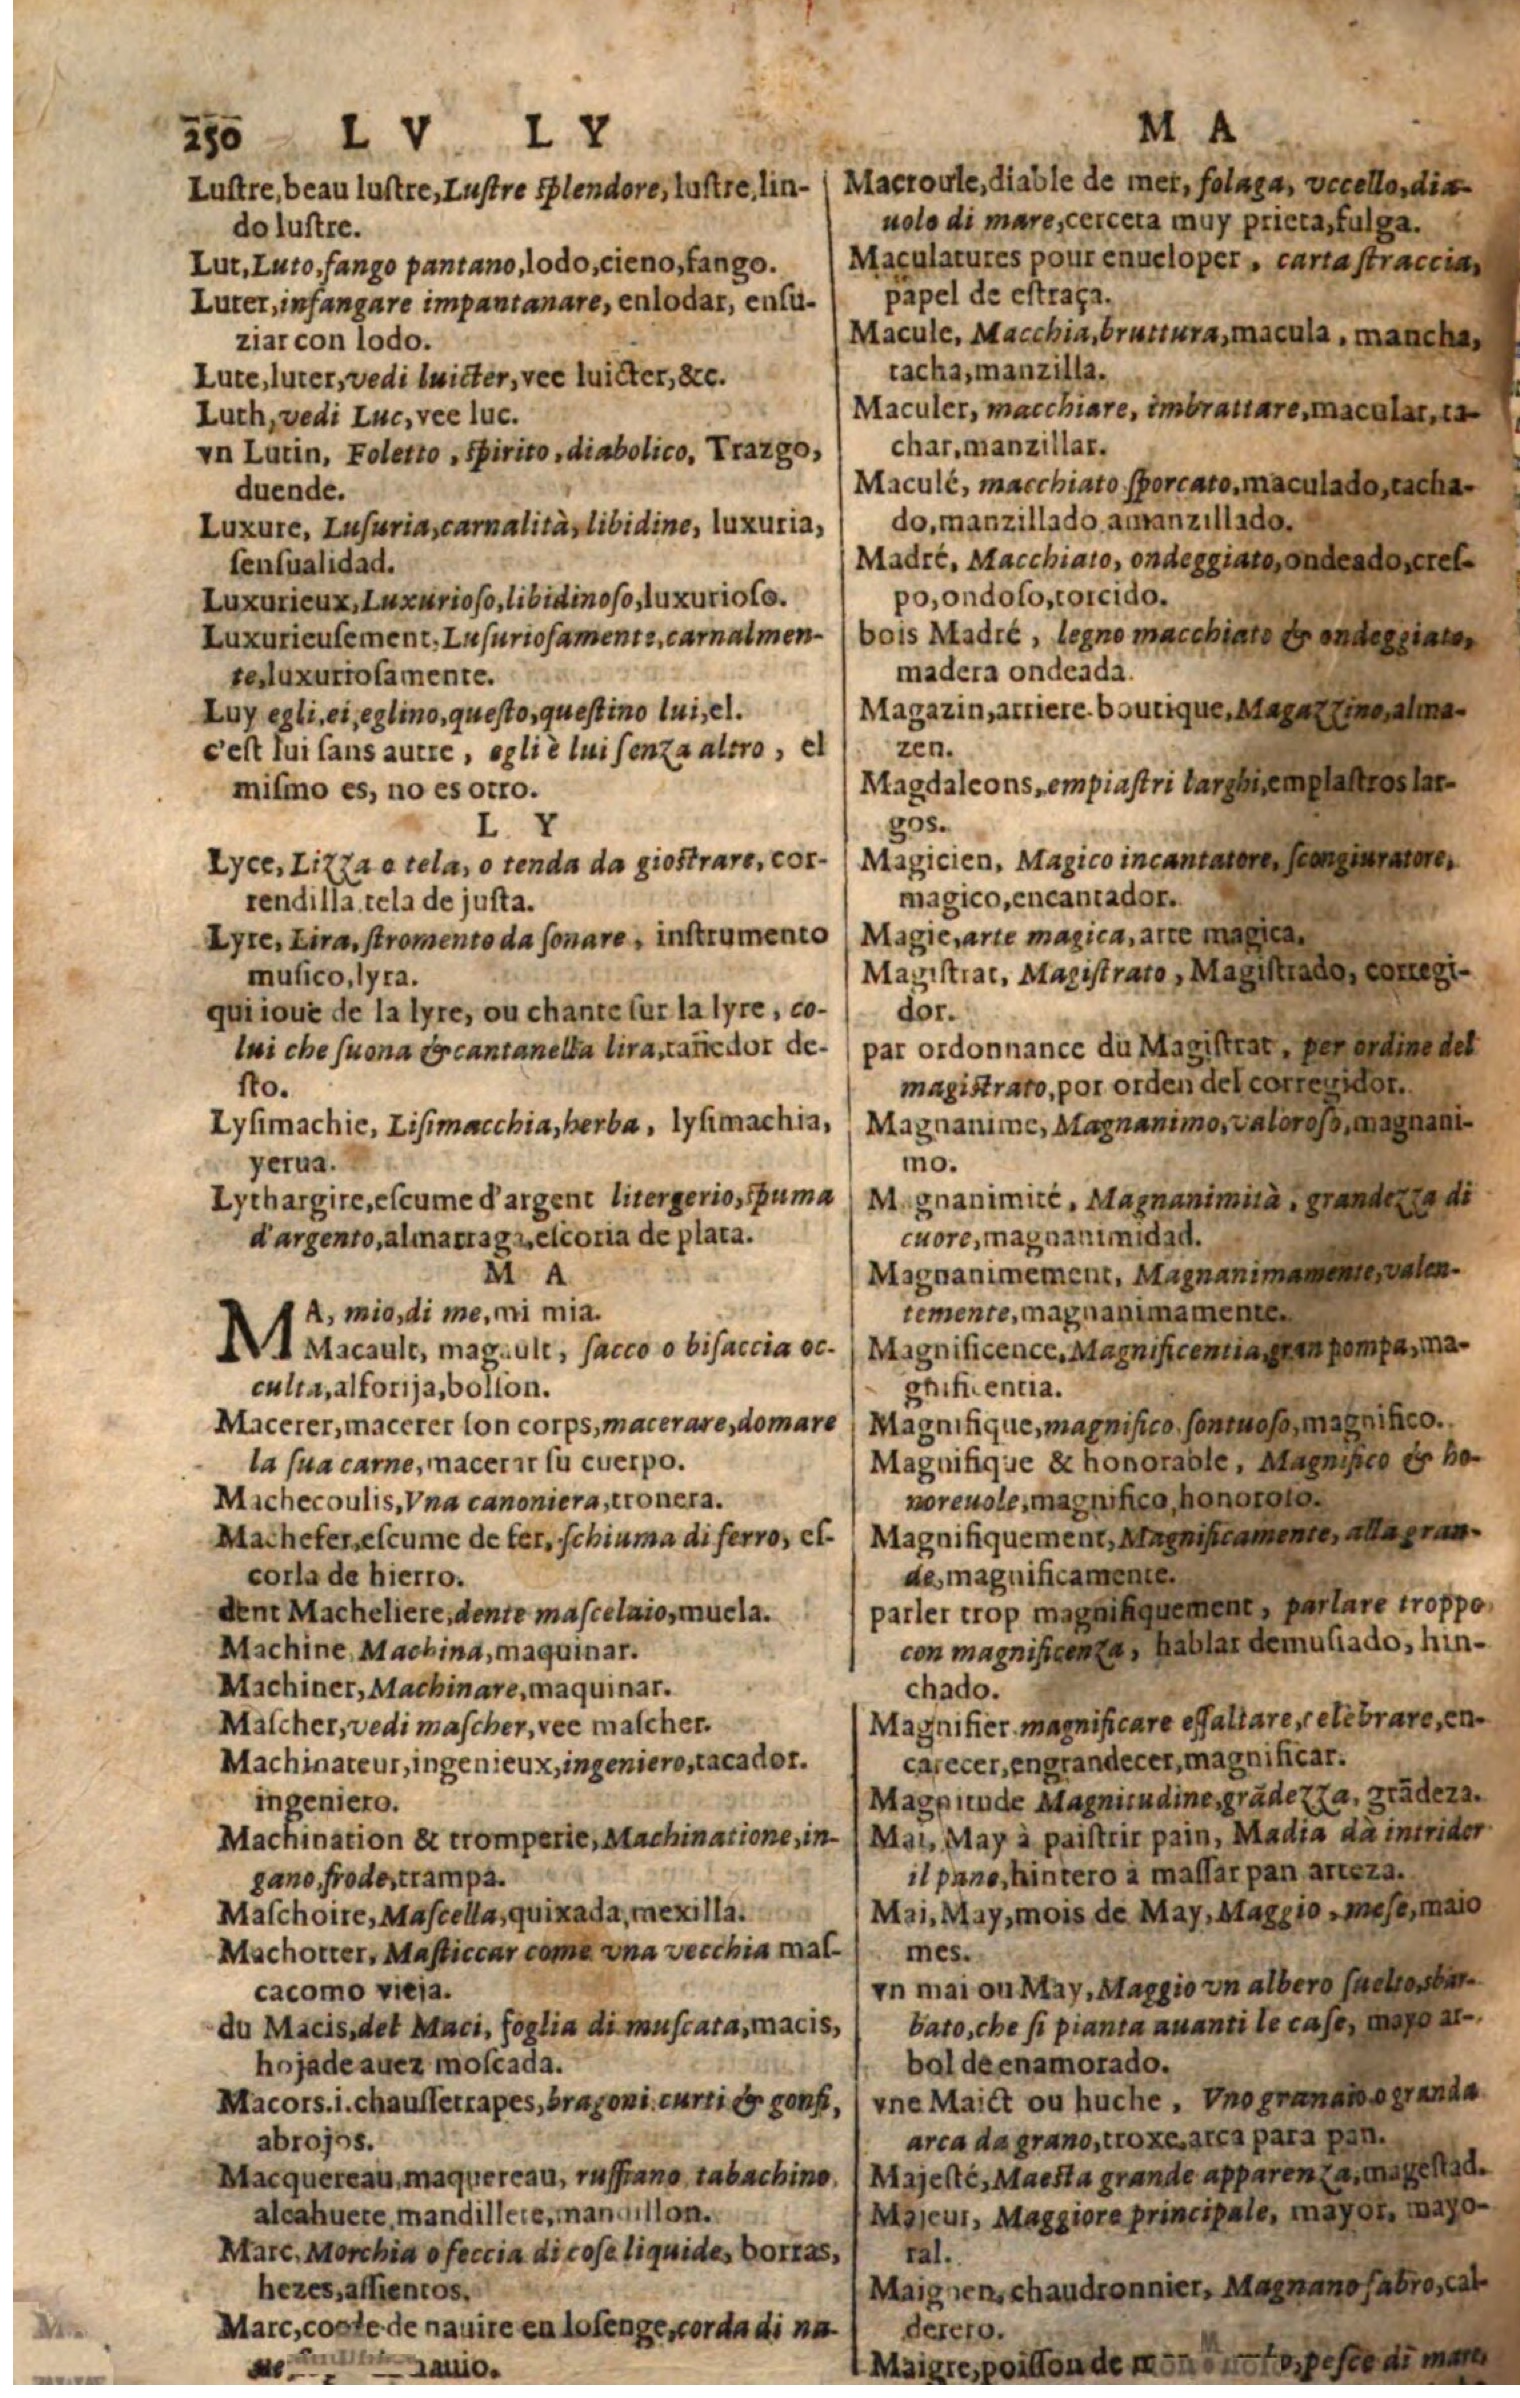 250 L V L Y
Lustre,beau lustre,Lustre splendore,lustre,lin-
do lustre.
Lut,Luto,fango pantano,lodo,cieno,fango.
Luter,infangare impantanare, enlodar, ensu-
ziar con lodo.
Lute,luter,vedi luicter,vee luicter,&c.
Luth,vedi Luc,vee luc.
vn Lutin, Foletto, spirito,diabolico, Trazgo,
duende.
Luxure, Lusuria,carnalità,libidine, luxuria,
sensualidad.
Luxurieux,Luxurioso,libidinoso,luxurioso.
Luxurieusement,Lusuriosamente,carnalmen-
te,luxuriosamente.
Luy egli,ei,eglino,questo,questino lui,el.
c'est lui sans autre, egli è lui senza altro, el
mismo es, no es otro.
L Y
Lyce, Lizza o tela, o tenda da giostrare, cor-
rendilla,tela de justa.
Lyre, Lira,stromento da sonare, instrumento
musico,lyra.
qui ioue de la lyre, ou chante sur la lyre, co-
lui che suona & cantanella lira,tañedor de-
sto.
Lysimachie, Lisimacchia,herba, lysimachia,
yerua.
Lythargire,escume d'argent litergerio,spuma
d'argento,almarraga,escoria de plata.
M A
MA, mio,di me,mi mia.
Macault, magault, sacco o bisaccia oc-
culta,alforija,bolson.
Macerer,macerer son corps,macerare,domare
la sua carne,macerar su cuerpo.
Machecoulis,Vna canoniera,tronera.
Machefer,escume de fer, schiuma di ferro, es-
corla de hierro.
dent Macheliere,dente mascelaio,muela.
Machine,Machina,maquinar.
Machiner,Machinare,maquinar.
Mascher,vedi mascher,vee mascher.
Machinateur,ingenieux,ingeniero,tacador.
ingeniero.
Machination & tromperie,Machinatione,in-
gano,frode,trampa.
Maschoire,Mascella,quixada,mexilla.
Machotter, Masticcar come vna vecchia mas-
cacomo vieja.
du Macis,del Maci, foglia di muscata,macis,
hojade auez moscada.
Macors.i.chaussetrapes,bragoni curti & gonfi,
abrojos.
Macquereau,maquereau, ruffiano tabachino
alcahuete,mandillete,mandillon.
Marc,Morchia o feccia di cose liquide, borras,
hezes,assientos.
Marc,coste de nauire en losenge,corda di na-
ue

M A
Macroule,diable de mer, folaga, vccello,dia-
uolo di mare,cerceta muy prieta,fulga.
Maculatures pour enueloper, carta straccia,
papel de estraça.
Macule, Macchia,bruttura,macula, mancha,
tacha,manzilla.
Maculer, macchiare, imbrattare,macular,ta-
char,manzillar.
Maculé, macchiato sporcato,maculado,tacha-
do,manzillado amanzillado.
Madré, Macchiato, ondeggiato,ondeado,cres-
po,ondoso,torcido.
bois Madré, legno macchiato & ondeggiato,
madera ondeada.
Magazin,arriere-boutique,Magazzino,alma-
zen.
Magdaleons,empiastri larghi,emplastros lar-
gos.
Magicien, Magico incantatore, scongiuratore,
magico,encantador.
Magie,arte magica,arte magica.
Magistrat, Magistrato, Magistrado, corregi-
dor.
par ordonnance du Magistrat, per ordine del
magistrato,por orden del corregidor.
Magnanime, Magnanimo,valoroso,magnani-
mo.
M gnanimité, Magnanimità, grandezza di
cuore,magnanimidad.
Magnanimement, Magnanimamente,valen-
temente,magnanimamente.
Magnificence,Magnificentia,gran pompa,ma-
gnificentia.
Magnifique,magnifico,sontuoso,magnifico.
Magnifique & honorable, Magnifico & ho-
noreuole,magnifico,honoroso.
Magnifiquement,Magnificamente, alla gran-
de,magnificamente.
parler trop magnifiquement, parlare troppo
con magnificenza, hablar demusiado, hin-
chado.
Magnifier magnificare essaltare,celebrare,en-
carecer,engrandecer,magnificar.
Magnitude Magnitudine,grãdezza, grãdeza.
Mai, May à paistrir pain, Madia da intrider
il pane,hintero a massar pan arteza.
Mai,May,mois de May,Maggio, mese,maio
mes.
vn mai ou May,Maggio vn albero suelto,sbar-
bato,che si pianta auanti le case, mayo ar-
bol de enamorado.
vne Maict ou huche, Vno granaio o granda
arca da grano,troxe,arca para pan.
Majesté,Maesta grande apparenza,magestad.
Majeur, Maggiore principale, mayor, mayo-
ral.
Maignen,chaudronnier, Magnano fabro,cal-
derero.
Maigre,poisson de pesce di mare,